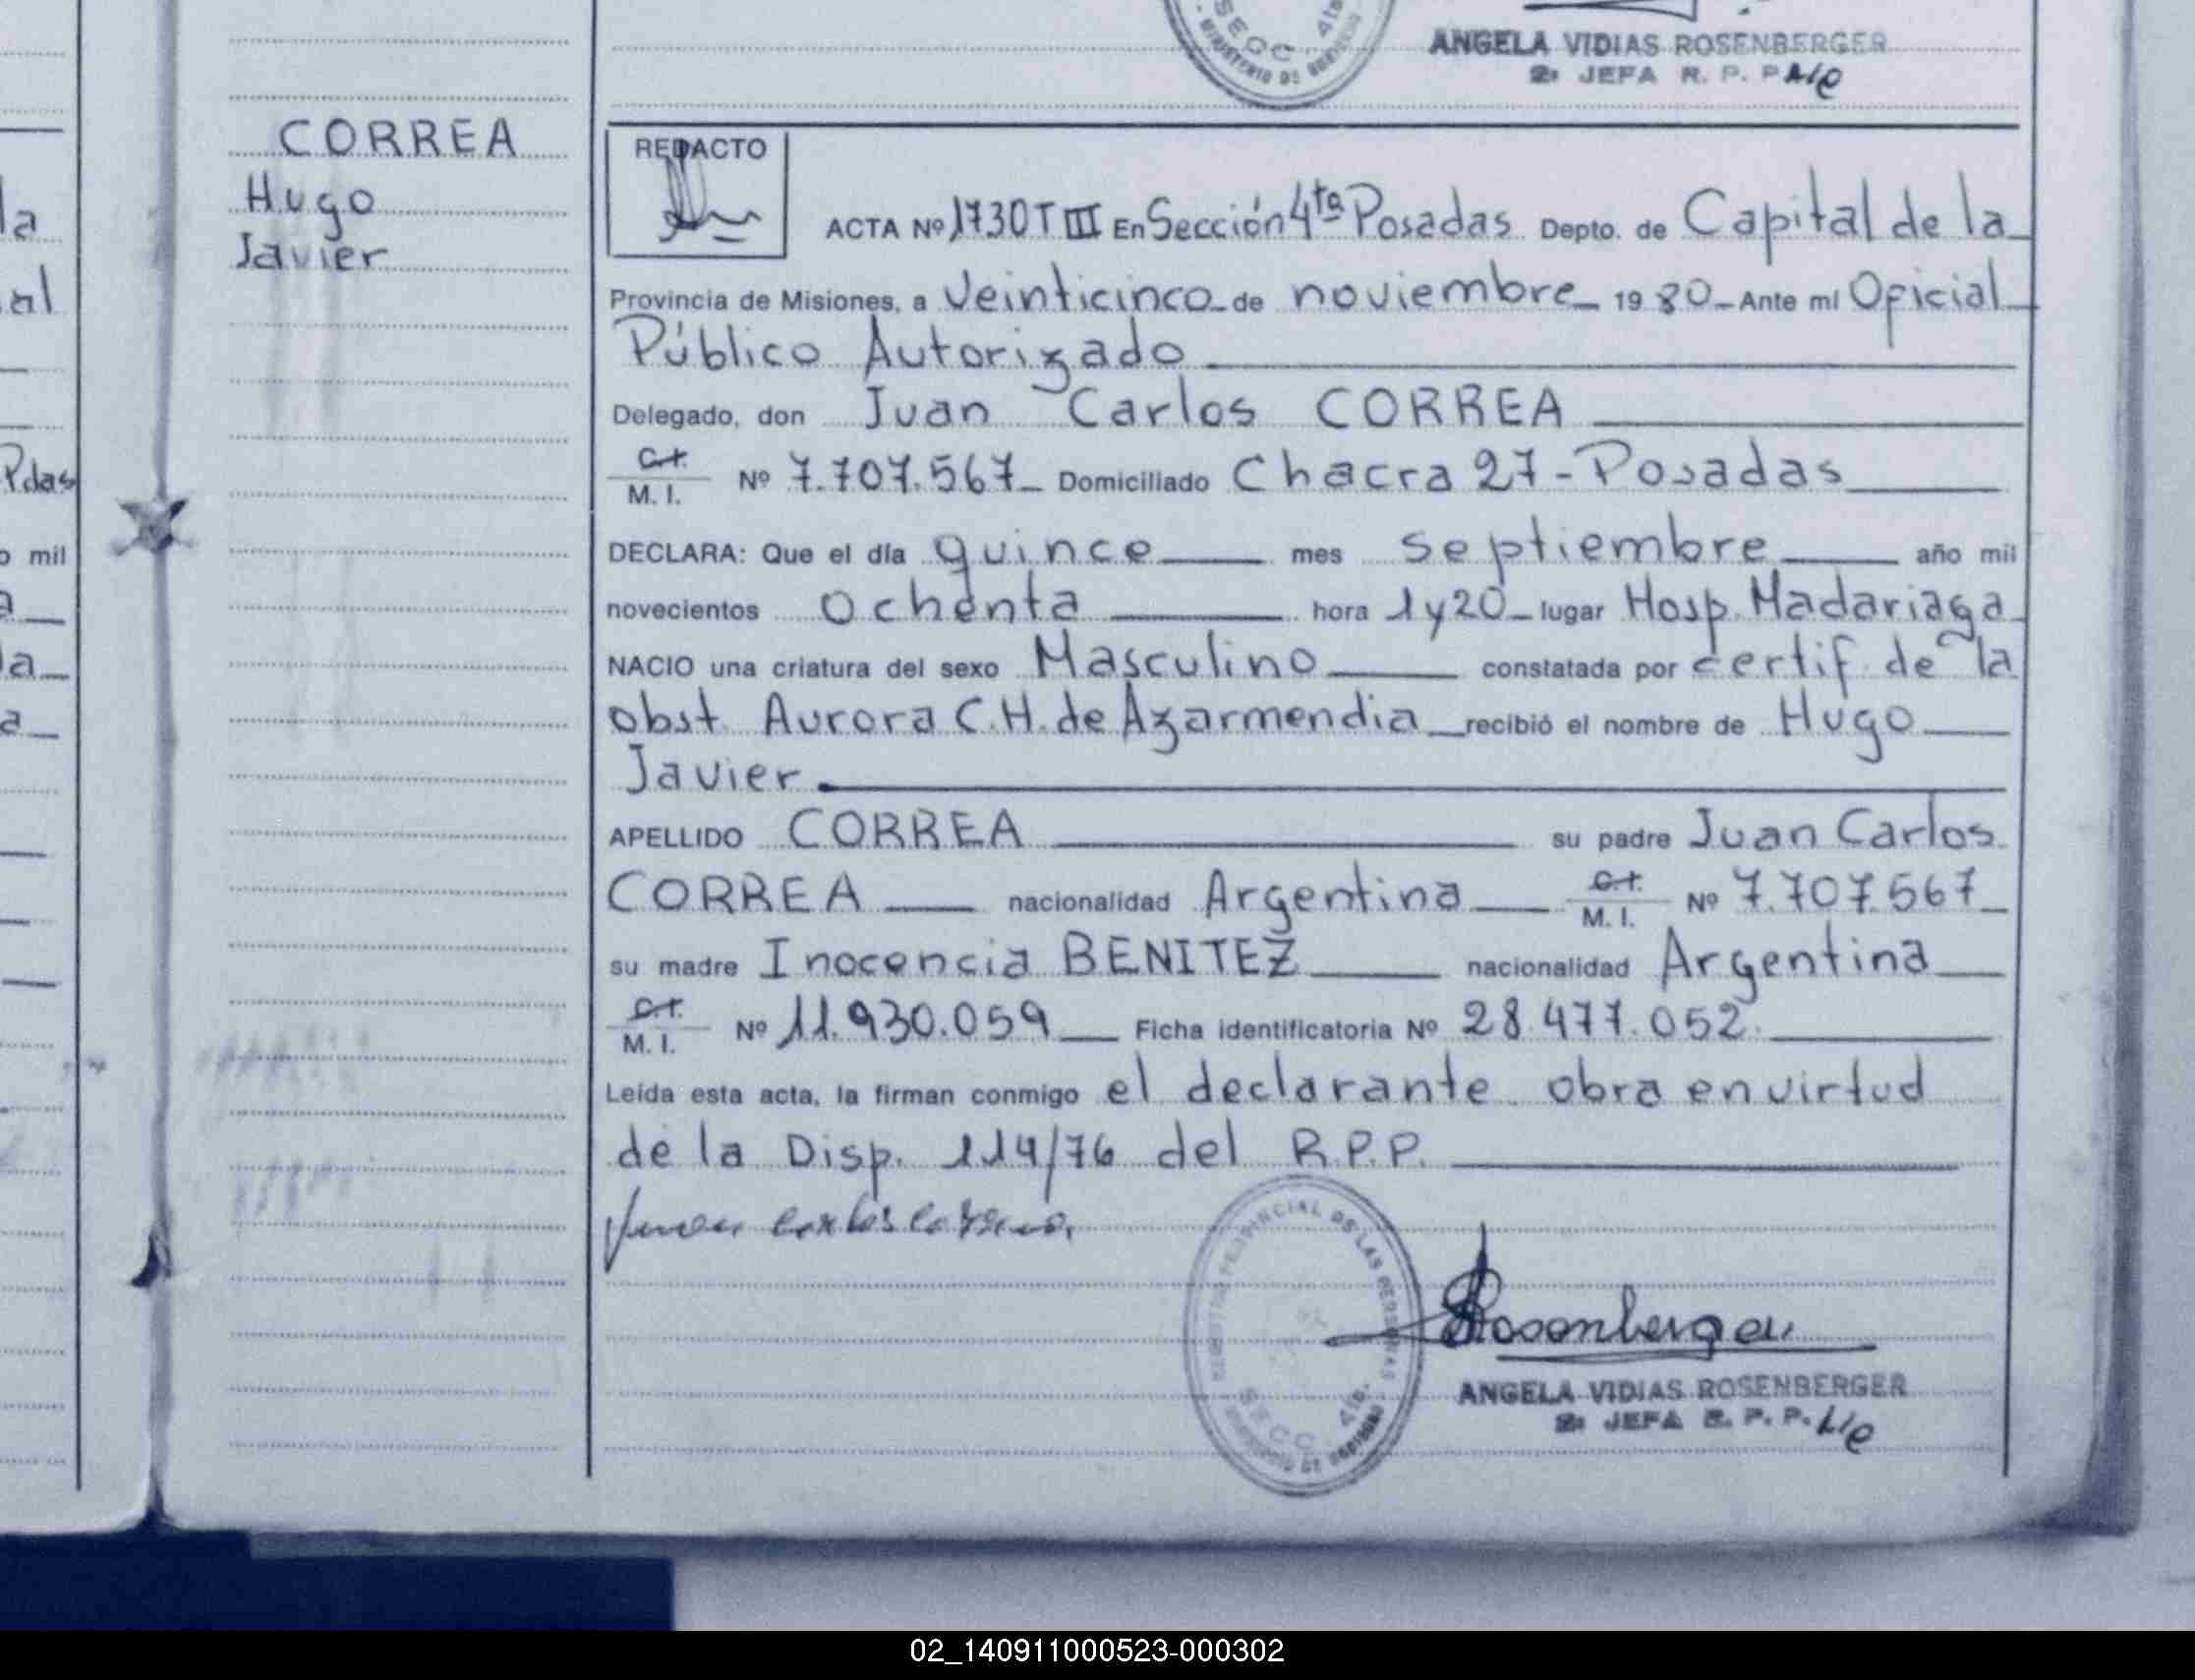 ANGELA VIDIAS ROSENBERGER
2a JEFA R. P. P.
SECC. 4ta.
MINISTERIO DE GOBIERNO
la
al
Pdas
o mil
a
la
a
CORREA
Hugo
Javier
REDACTO
ACTA Nº 1730 T III En Sección 4ta Posadas Depto. de Capital de la
Provincia de Misiones, a Veinticinco de noviembre 1980 Ante mí Oficial
Público Autorizado
Delegado, don Juan Carlos CORREA
C.I.
M. I. Nº 7.707.567 Domiciliado Chacra 27 - Posadas
DECLARA: Que el día quince mes septiembre año mil
novecientos Ochenta hora 1 y 20 lugar Hosp. Madariaga
NACIO una criatura del sexo Masculino constatada por certif. de la
obst. Aurora C.H. de Azarmendia recibió el nombre de Hugo
Javier.
APELLIDO CORREA su padre Juan Carlos
CORREA nacionalidad Argentina C.I. M. I. Nº 7.707.567
su madre Inocencia BENITEZ nacionalidad Argentina
C.I.
M. I. Nº 11.930.059 Ficha identificatoria Nº 28.477.052.
Leída esta acta, la firman conmigo el declarante obra en virtud
de la Disp. 114/76 del R.P.P.
Juan Carlos Correa
REGISTRO PROVINCIAL DE LAS PERSONAS
SECC. 4ta.
MINISTERIO DE GOBIERNO
Rosenberger
ANGELA VIDIAS ROSENBERGER
2a JEFA R. P. P.
02_140911000523-000302